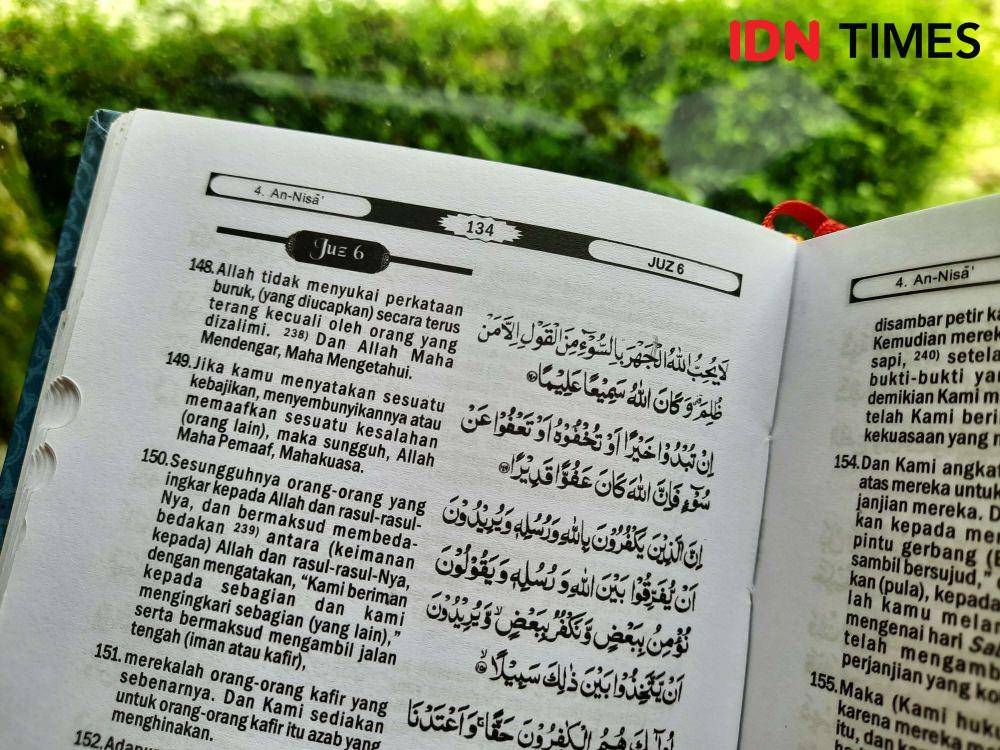 IDN TIMES
4. An-Nisā'
134
JUZ 6
Juz 6
148. Allah tidak menyukai perkataan
buruk, (yang diucapkan) secara terus
terang kecuali oleh orang yang
dizalimi. 238) Dan Allah Maha
Mendengar, Maha Mengetahui.
149. Jika kamu menyatakan sesuatu
kebajikan, menyembunyikannya atau
memaafkan sesuatu kesalahan
(orang lain), maka sungguh, Allah
Maha Pemaaf, Mahakuasa.
150. Sesungguhnya orang-orang yang
ingkar kepada Allah dan rasul-rasul-
Nya, dan bermaksud membeda-
bedakan 239) antara (keimanan
kepada) Allah dan rasul-rasul-Nya,
dengan mengatakan, “Kami beriman
kepada sebagian dan kami
mengingkari sebagian (yang lain),”
serta bermaksud mengambil jalan
tengah (iman atau kafir),
151. merekalah orang-orang kafir yang
sebenarnya. Dan Kami sediakan
untuk orang-orang kafir itu azab yang
menghinakan.
152. Adapun
لَا يُحِبُّ اللّٰهُ الْجَهْرَ بِالسُّوْۤءِ مِنَ الْقَوْلِ اِلَّا مَنْ
ظُلِمَ ۗ وَكَانَ اللّٰهُ سَمِيْعًا عَلِيْمًا ١٤٨
اِنْ تُبْدُوْا خَيْرًا اَوْ تُخْفُوْهُ اَوْ تَعْفُوْا عَنْ
سُوْۤءٍ فَاِنَّ اللّٰهَ كَانَ عَفُوًّا قَدِيْرًا ١٤٩
اِنَّ الَّذِيْنَ يَكْفُرُوْنَ بِاللّٰهِ وَرُسُلِهٖ وَيُرِيْدُوْنَ
اَنْ يُّفَرِّقُوْا بَيْنَ اللّٰهِ وَرُسُلِهٖ وَيَقُوْلُوْنَ
نُؤْمِنُ بِبَعْضٍ وَّنَكْفُرُ بِبَعْضٍ ۙ وَّيُرِيْدُوْنَ
اَنْ يَّتَّخِذُوْا بَيْنَ ذٰلِكَ سَبِيْلًا ۙ ١٥٠
اُولٰۤىِٕكَ هُمُ الْكٰفِرُوْنَ حَقًّا ۚ وَاَعْتَدْنَا
4. An-Nisā'
disambar petir
Kemudian
sapi, 240)
bukti-bukti
demikian Kami
telah Kami
kekuasaan yang
154. Dan Kami
atas mereka untuk
janjian mereka.
kan kepada
pintu gerbang
sambil bersujud,”
kan (pula), kepada
lah kamu
mengenai hari
telah
perjanjian yang
155. Maka (Kami
karena mereka
itu, dan